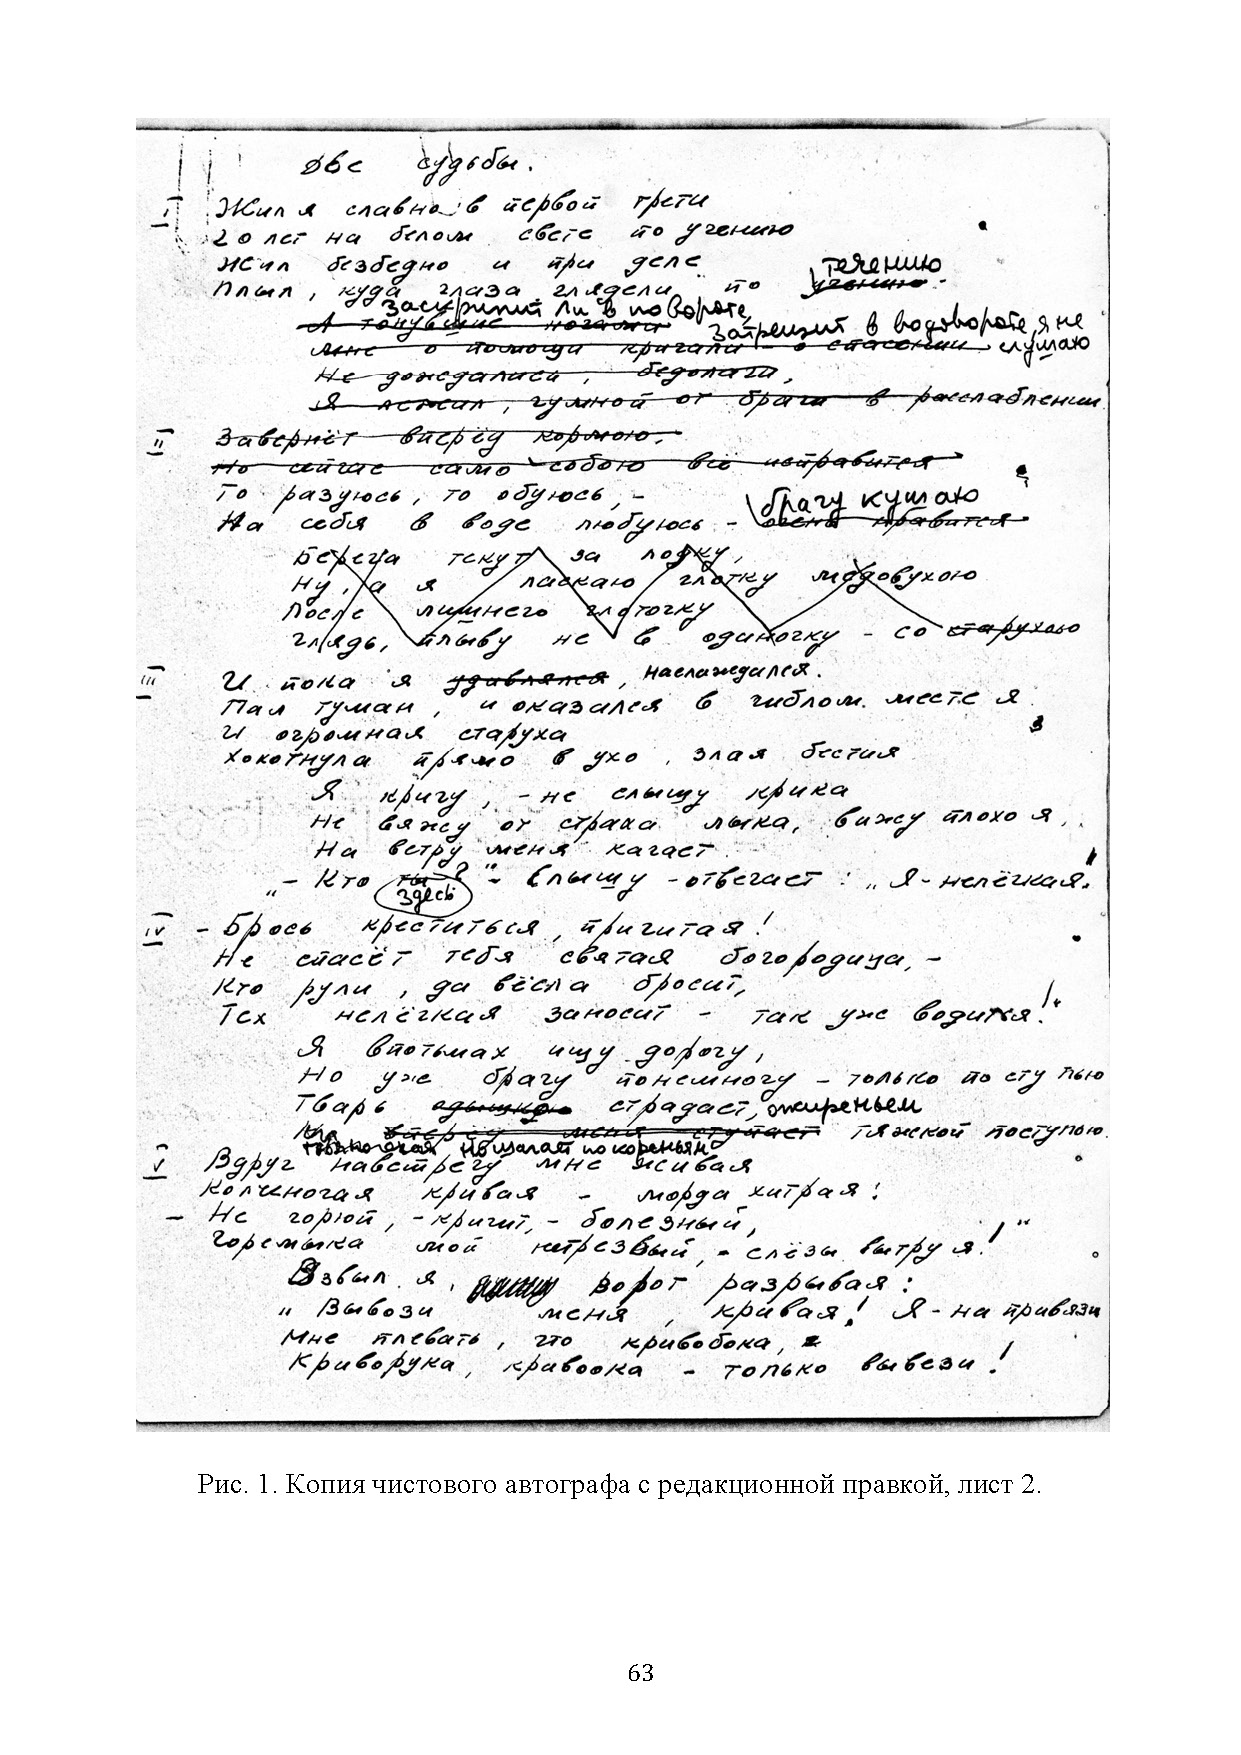 Две судьбы.
I Жил я славно в первой трети
20 лет на белом свете по учению
Жил безбедно и при деле
течению
Плыл, куда глаза глядели по учению.
Заскрипит ли в повороте,
А тонувшие ногами
Затрещит в водовороте, я не
Мне о помощи кричали – о спасении. слушаю
Не дождались, бедолаги,
Я лежал, чумной от браги в расслаблении
II Завернёт вперёд кормою.
Но сейчас само собою всё исправится
То разуюсь, то обуюсь, –
брагу кушаю
На себя в воде любуюсь – очень нравится
Берега текут за лодку,
Ну, а я ласкаю глотку медовухою
После лишнего глоточку
Глядь, плыву не в одиночку – со старухою
III И пока я удивлялся, наслаждался.
Пал туман, и оказался в гиблом месте я
И огромная старуха
Хохотнула прямо в ухо, злая бестия
Я кричу, – не слышу крика
Не вяжу от страха лыка, вижу плохо я,
На ветру меня качает
„– Кто ты?" – Слышу – отвечает: „Я – нелёгкая!
здесь
IV – Брось креститься, причитая!
Не спасёт тебя святая богородица, –
Кто рули, да вёсла бросит,
Тех нелёгкая заносит – так уже водится!"
Я впотьмах ищу дорогу,
Но уже брагу понемногу – только по сту пью
Тварь одышкою страдает, ожиреньем
вперёд меня ступает тяжкой поступью.
но шагает по кореньям
V Вдруг навстречу мне живая
Колченогая кривая – морда хитрая!
– Не горюй, – кричит, – болезный,
Горемыка мой нетрезвый, – слёзы вытру я!"
Взвыл я, ворот разрывая:
„Вывози меня, кривая! Я – на привязи
Мне плевать, что кривобока,
Криворука, кривоока – только вывези!
Рис. 1. Копия чистового автографа с редакционной правкой, лист 2.
63